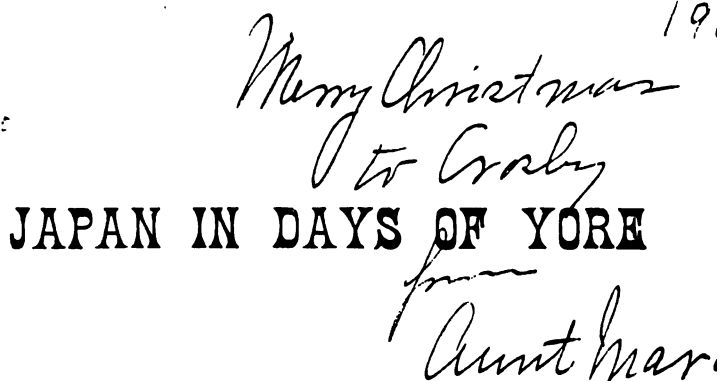 Merry Christmas
to Crosby
JAPAN IN DAYS OF YORE
from
Aunt